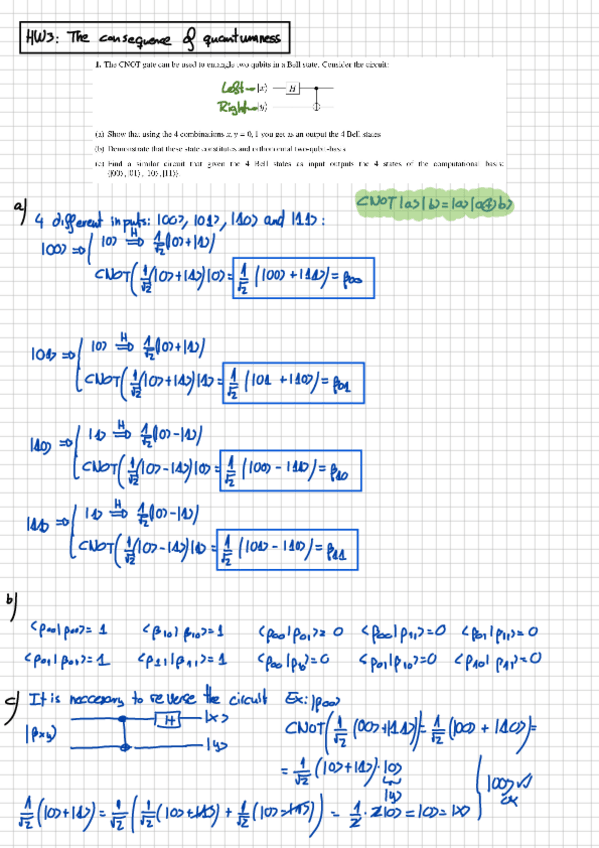 HW3: The consequence of quantumness
1. The CNOT gate can be used to entangle two qubits in a Bell state. Consider the circuit:
Left → |x⟩ H
Right → |y⟩
(a) Show that using the 4 combinations x, y = 0, 1 you get as an output the 4 Bell states
(b) Demonstrate that these state constitutes an orthonormal two-qubit basis
(c) Find a similar circuit that given the 4 Bell states as input outputs the 4 states of the computational basis:
{|00⟩, |01⟩, |10⟩, |11⟩}
CNOT |a⟩|b⟩ = |a⟩|a⊕b⟩
a) 4 different inputs: |00⟩, |01⟩, |10⟩ and |11⟩:
|00⟩ ⇒ { |0⟩ H⇒ 1/√2 (|0⟩+|1⟩)
CNOT(1/√2 (|0⟩+|1⟩)|0⟩ = 1/√2 (|00⟩ + |11⟩) = β00
|01⟩ ⇒ { |0⟩ H⇒ 1/√2 (|0⟩+|1⟩)
CNOT(1/√2 (|0⟩+|1⟩)|1⟩ = 1/√2 (|01 + |10⟩) = β01
|10⟩ ⇒ { |1⟩ H⇒ 1/√2 (|0⟩-|1⟩)
CNOT(1/√2 (|0⟩-|1⟩)|0⟩ = 1/√2 (|00⟩ - |11⟩) = β10
|11⟩ ⇒ { |1⟩ H⇒ 1/√2 (|0⟩-|1⟩)
CNOT(1/√2 (|0⟩-|1⟩)|1⟩ = 1/√2 (|01⟩ - |10⟩) = β11
b)
⟨β00|β00⟩ = 1 ⟨β10|β10⟩ = 1 ⟨β00|β01⟩ = 0 ⟨β00|β11⟩ = 0 ⟨β01|β11⟩ = 0
⟨β01|β01⟩ = 1 ⟨β11|β11⟩ = 1 ⟨β00|β10⟩ = 0 ⟨β01|β10⟩ = 0 ⟨β10|β11⟩ = 0
c) It is neccesary to reverse the circuit Ex: |β00⟩
|βxy⟩ H |x⟩
|y⟩
CNOT(1/√2 (00⟩+|11⟩) = 1/√2 (|00⟩ + |10⟩) =
= 1/√2 (|0⟩+|1⟩)·|0⟩
|y⟩
|00⟩ ✓
ok
1/√2 (|0⟩+|1⟩) = 1/√2 (1/√2 (|0⟩+|1⟩) + 1/√2 (|0⟩-|1⟩)) = 1/2 · 2|0⟩ = |0⟩ = |x⟩